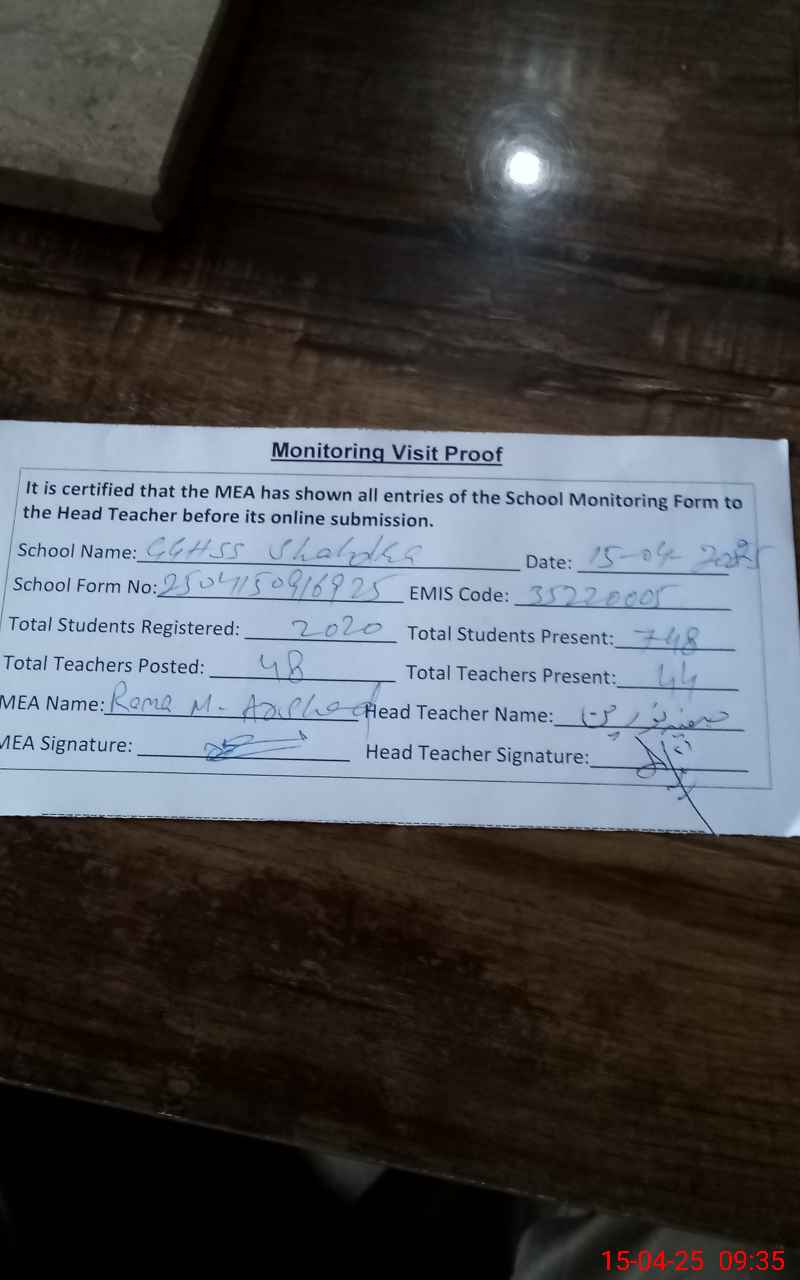 Monitoring Visit Proof
It is certified that the MEA has shown all entries of the School Monitoring Form to
the Head Teacher before its online submission.
School Name: GGHSS Date: 15-04-2025
School Form No: 2504150916925 EMIS Code: 35220005
Total Students Registered: 2020 Total Students Present: 748
Total Teachers Posted: 48 Total Teachers Present: 44
MEA Name: Rana M. Head Teacher Name:
MEA Signature: Head Teacher Signature:
15-04-25 09:35